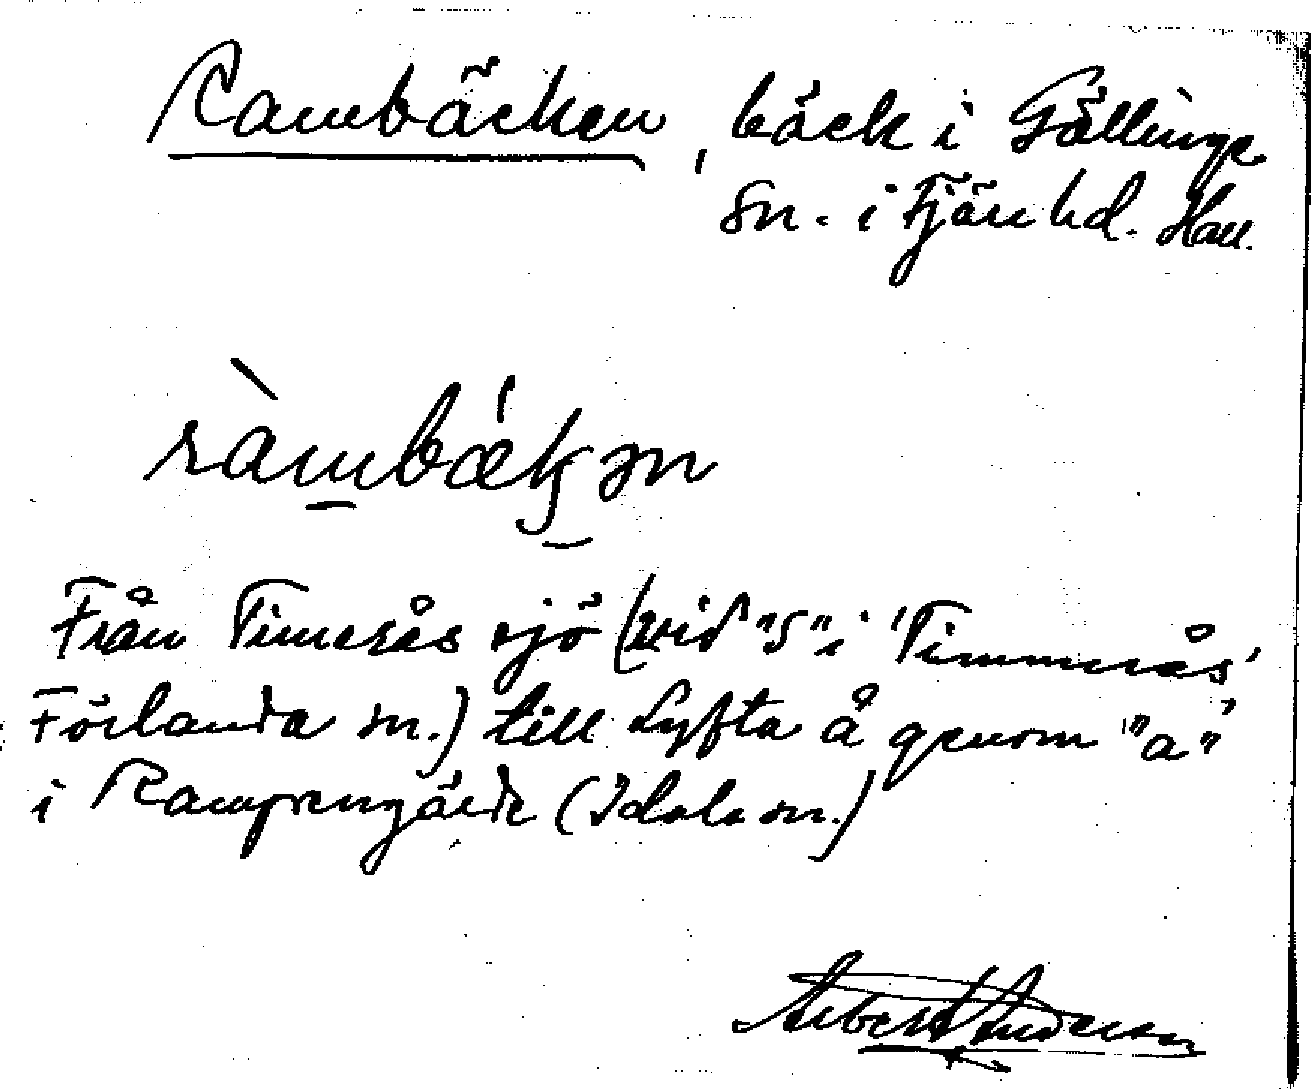 Rambäcken, bäck i Gällinge
sn. i Fjäre hd. Hall.
ràmbǽkən
Från Timerås sjö (vid "S" i 'Timmerås'
Förlanda sn.) till Lyfta å genom "a"
i Rampengärde (Idala sn.)
Albert Anderson